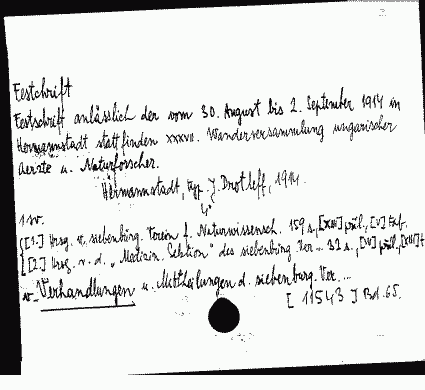 Festschrift
Festschrift anlässlich der vom 30. August bis 2. September 1914 in
Hermannstadt stattfinden XXXVII. Wanderversammlung ungarischer
Aerzte u. Naturforscher.
Hermannstadt, typ. J. Drotleff, 1914.
4°
1 sv.
[1.] Hrsg. v. siebenbürg. Verein f. Naturwissensch. 159 s., [XIII] pril., [V]
[2.] Hrsg. v. d. „Medizin. Sektion" des siebenbürg. Ver... 32 s., [IV] pril.,
v. Verhandlungen u. Mittheilungen d. siebenbürg. Ver. ...
[11543] Bd. 65.